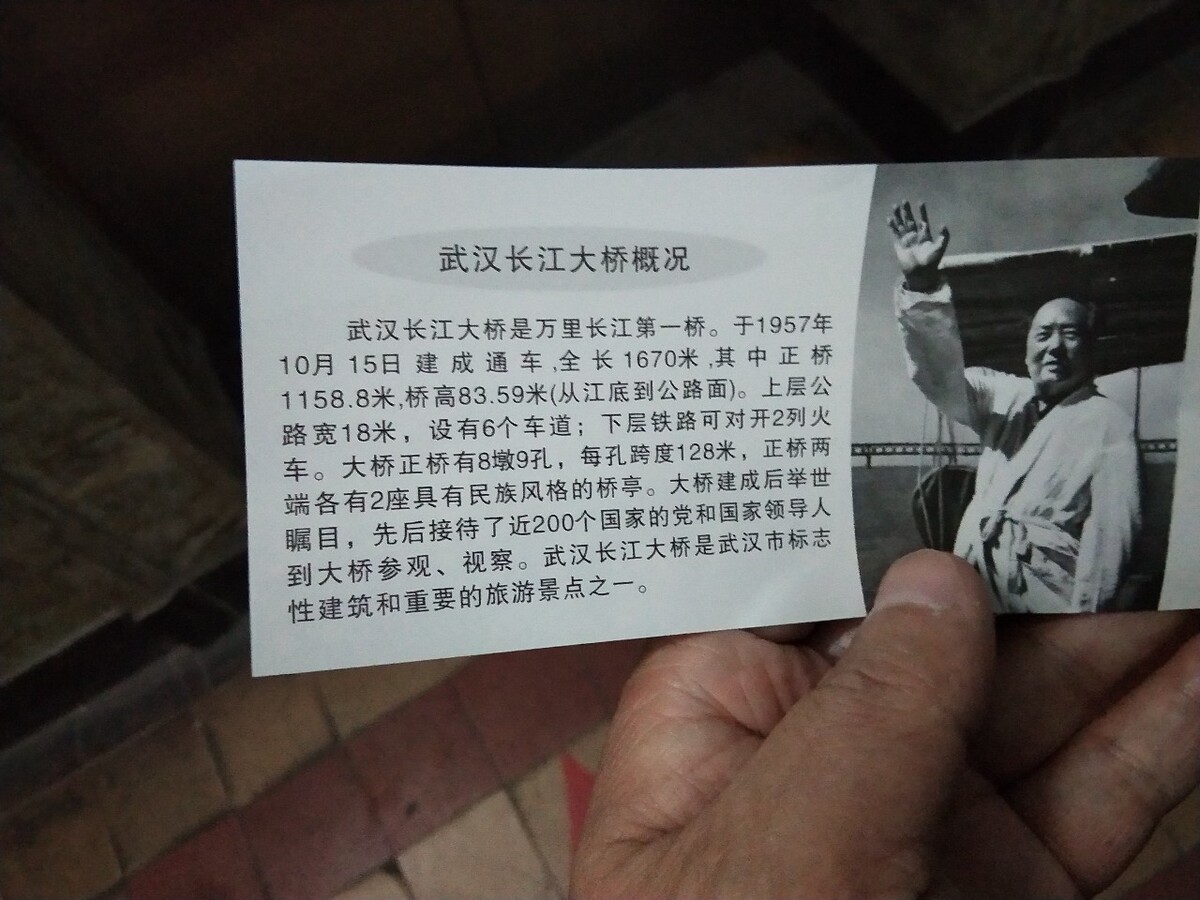 武汉长江大桥概况
武汉长江大桥是万里长江第一桥。于1957年
10月 15日 建 成 通 车 ,全 长 1670米 ,其 中 正 桥
1158.8米,桥高83.59米(从江底到公路面)。上层公
路宽18米，设有6个车道；下层铁路可对开2列火
车。大桥正桥有8墩9孔，每孔跨度128米，正桥两
端各有2座具有民族风格的桥亭。大桥建成后举世
瞩目，先后接待了近200个国家的党和国家领导人
到大桥参观、视察。武汉长江大桥是武汉市标志
性建筑和重要的旅游景点之一。